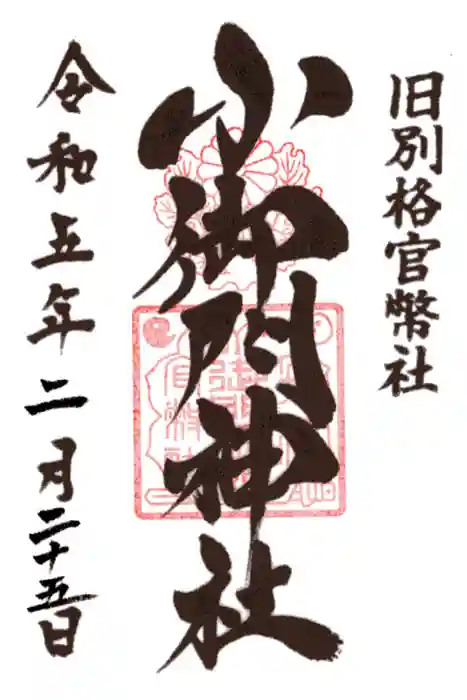 旧別格官幣社
小御門神社
令和五年二月二十五日